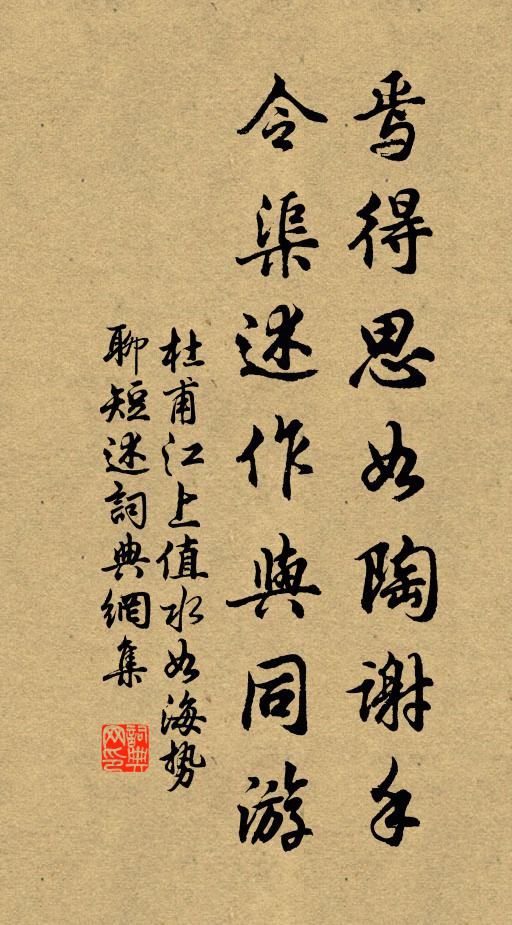 焉得思如陶謝手
令渠述作與同游
杜甫江上值水如海勢
聊短述詞典網集
詞典网印